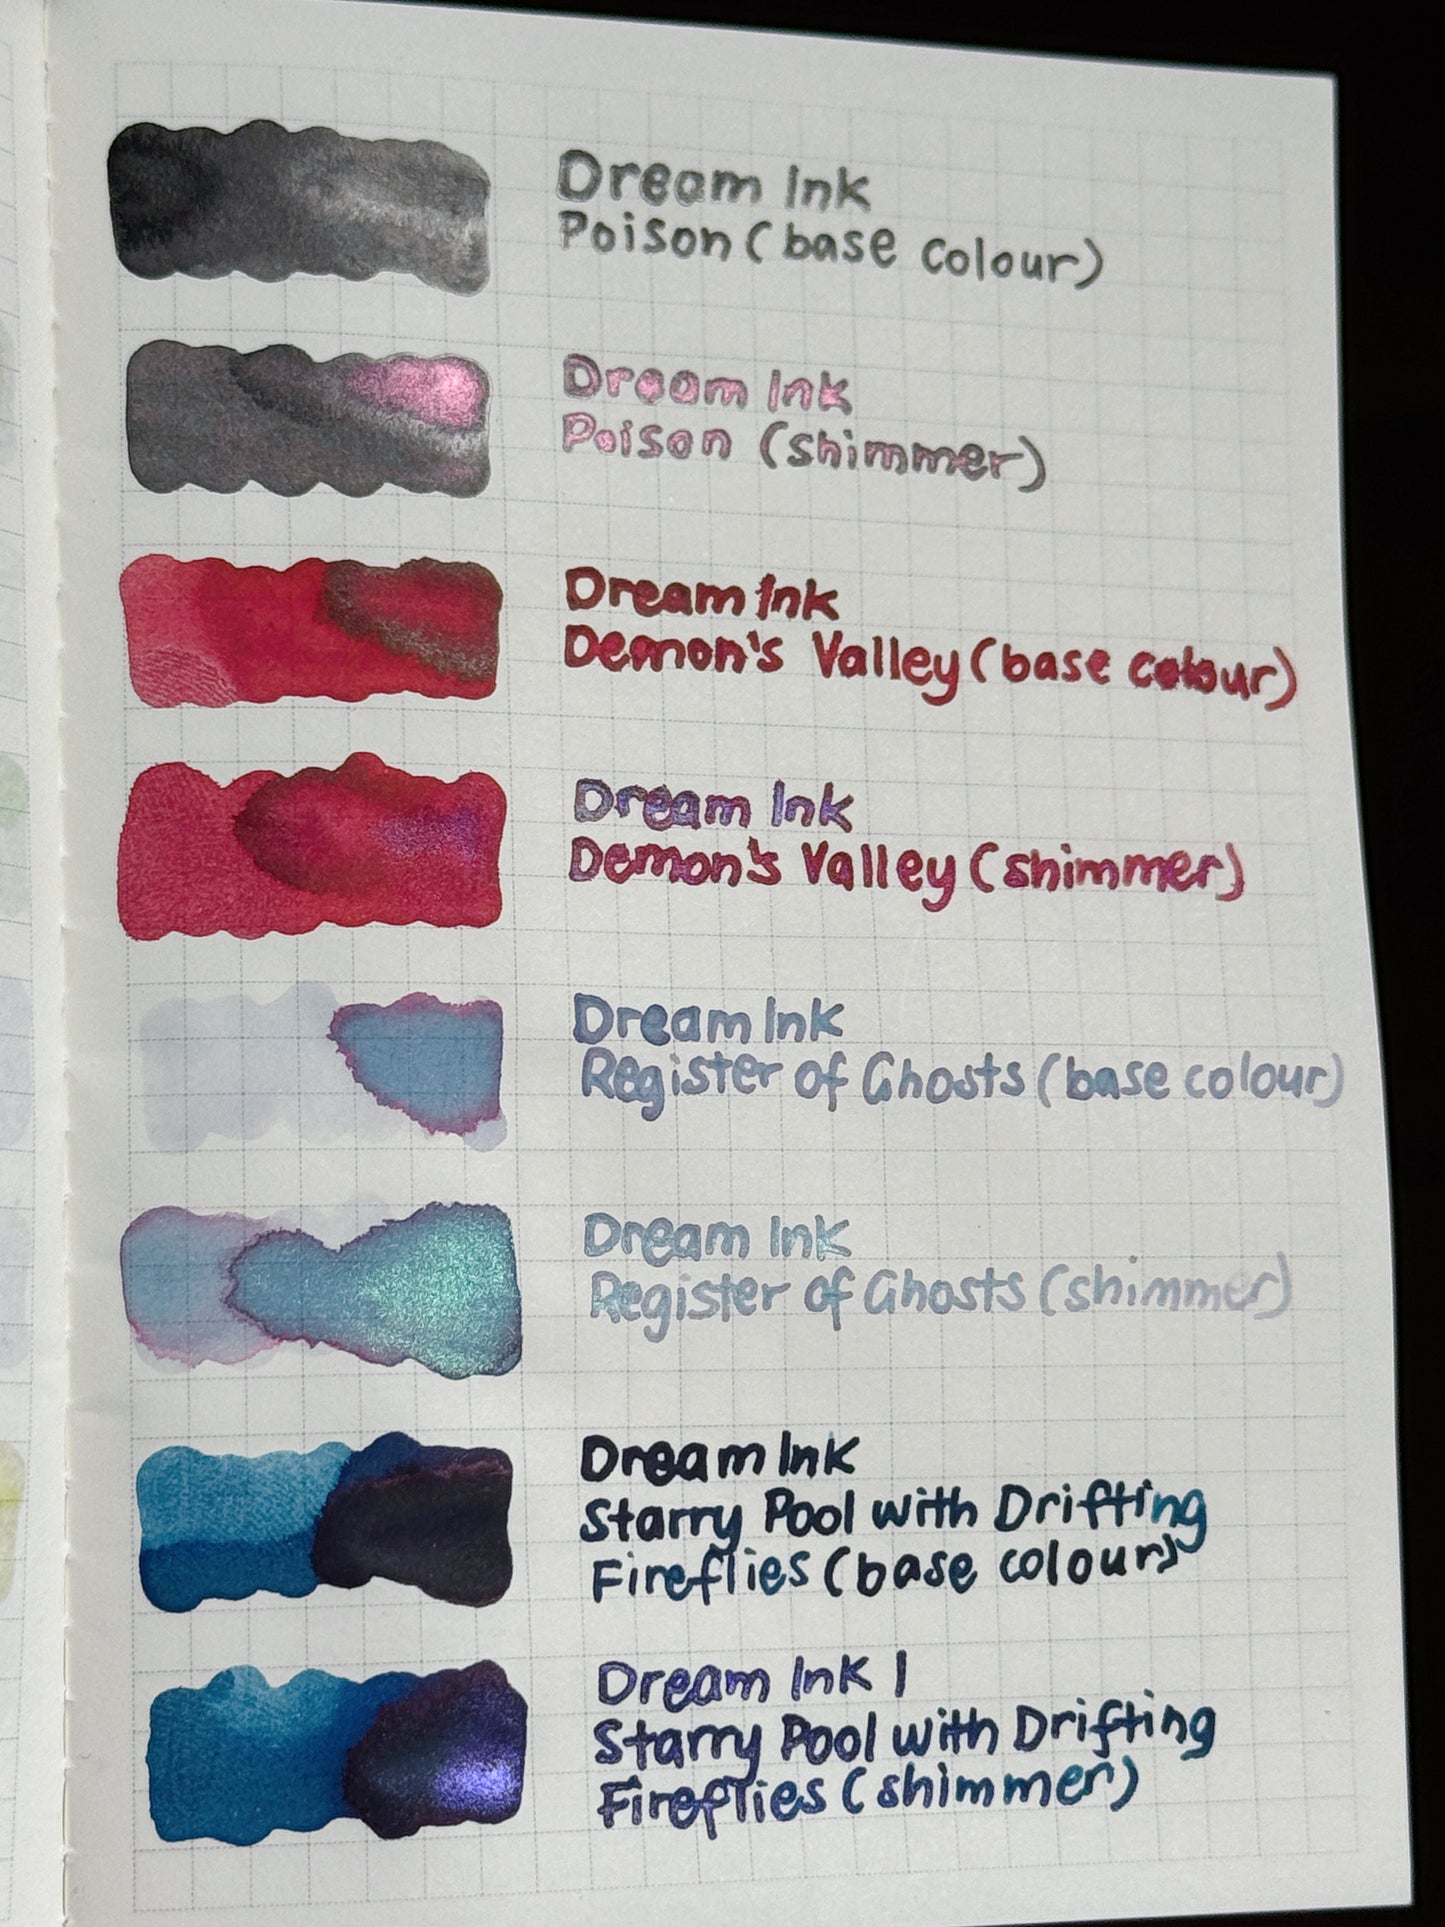 Dream Ink
Poison (base colour)
Dream Ink
Poison (shimmer)
Dream Ink
Demon's Valley (base colour)
Dream Ink
Demon's Valley (shimmer)
Dream Ink
Register of Ghosts (base colour)
Dream Ink
Register of Ghosts (shimmer)
Dream Ink
Starry Pool with Drifting
Fireflies (base colour)
Dream Ink |
Starry Pool with Drifting
Fireflies (shimmer)